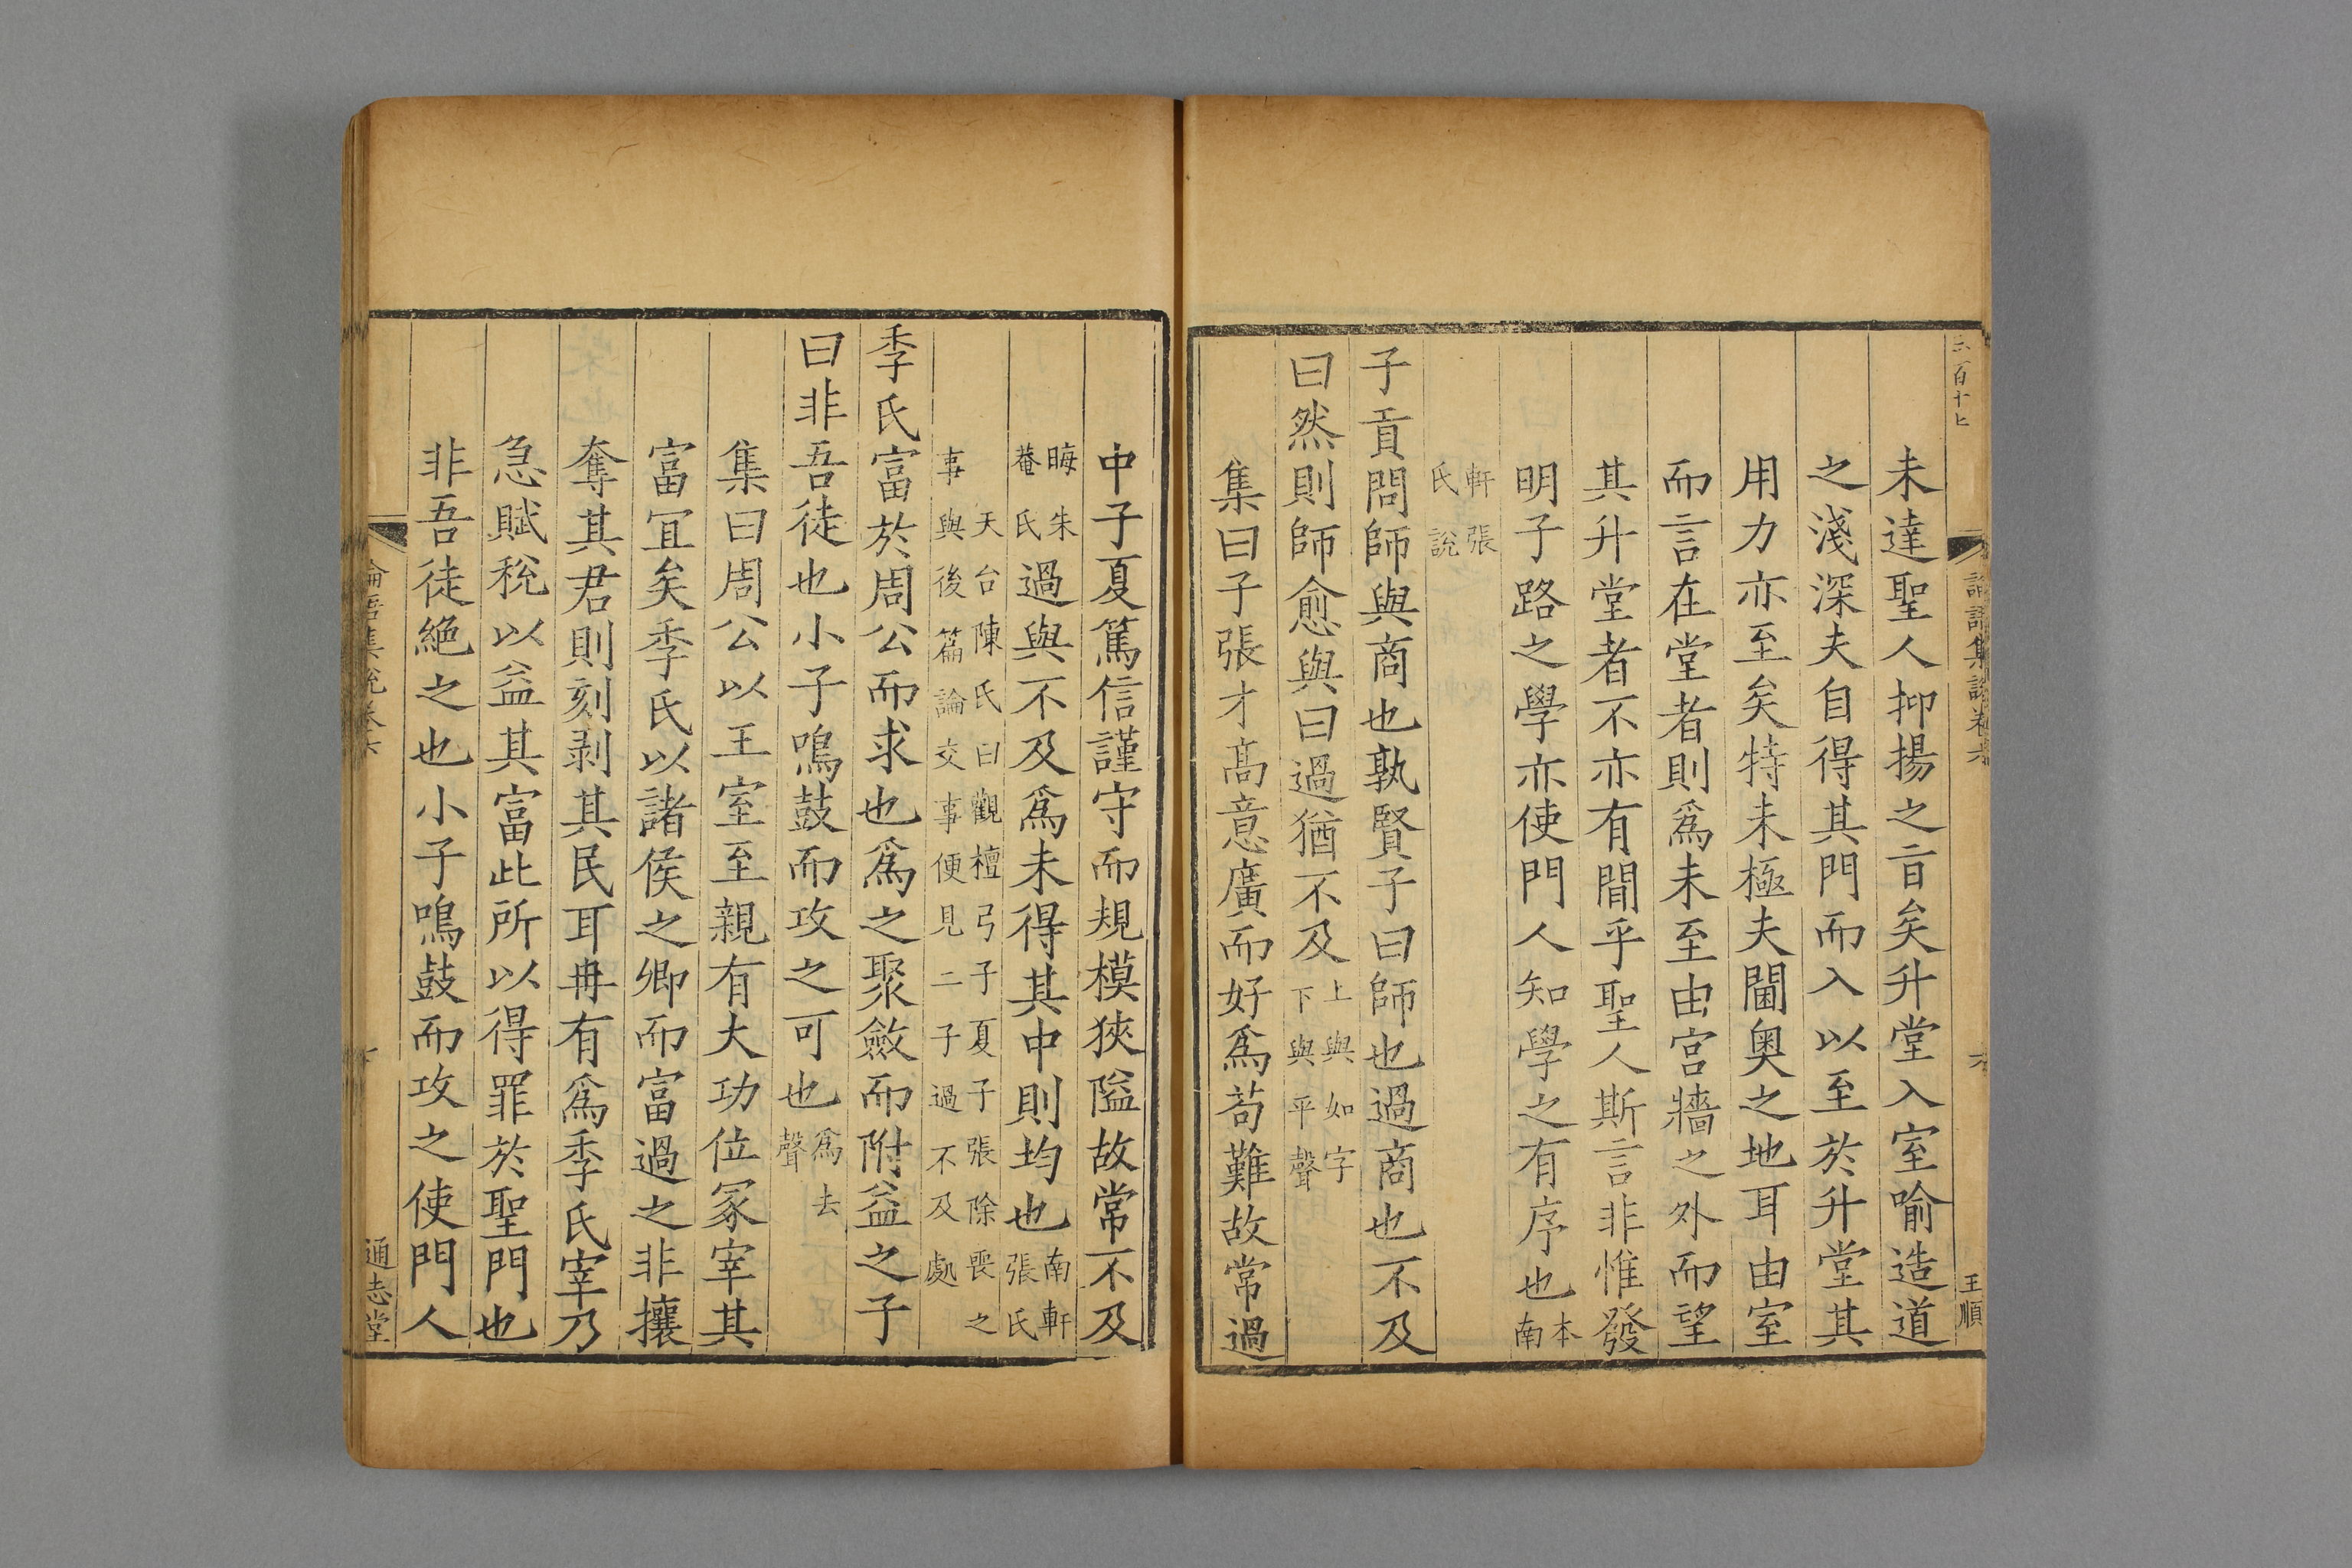 六百十七
論語集說卷六
六
王順
未達聖人抑揚之旨矣升堂入室喻造道
之淺深夫自得其門而入以至於升堂其
用力亦至矣特未極夫閫奧之地耳由室
而言在堂者則爲未至由宮牆之外而望
其升堂者不亦有間乎聖人斯言非惟發
明子路之學亦使門人知學之有序也本南
軒張氏說
子貢問師與商也孰賢子曰師也過商也不及
曰然則師愈與曰過猶不及上與如字下與平聲
集曰子張才高意廣而好爲苟難故常過
中子夏篤信謹守而規模狹隘故常不及
晦朱菴氏過與不及爲未得其中則均也南軒張氏
天台陳氏曰觀檀弓子夏子張除喪之事與後篇論交事便見二子過不及處
季氏富於周公而求也爲之聚斂而附益之子
曰非吾徒也小子鳴鼓而攻之可也爲去聲
集曰周公以王室至親有大功位冢宰其
富宜矣季氏以諸侯之卿而富過之非攘
奪其君則刻剥其民耳冉有爲季氏宰乃
急賦稅以益其富此所以得罪於聖門也
非吾徒絕之也小子鳴鼓而攻之使門人
論語集說卷六
通志堂